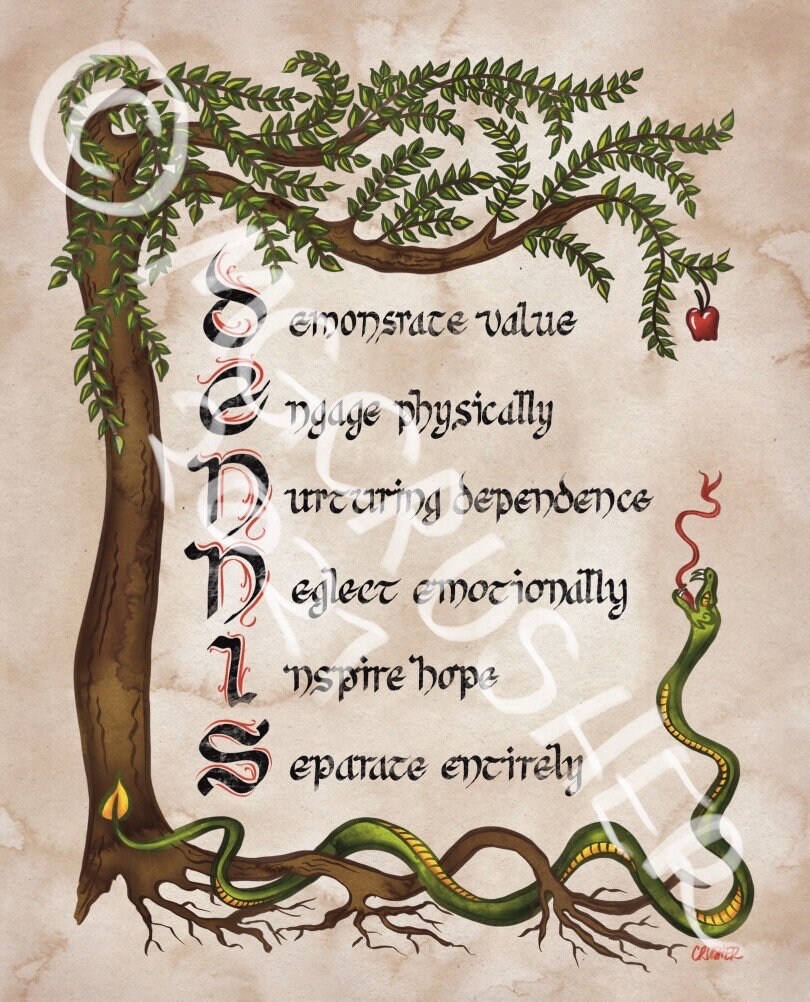 ©
Demonsrate value
Engage physically
Nurturing dependence
Neglect emotionally
Inspire hope
Separate entirely
CRUSHER